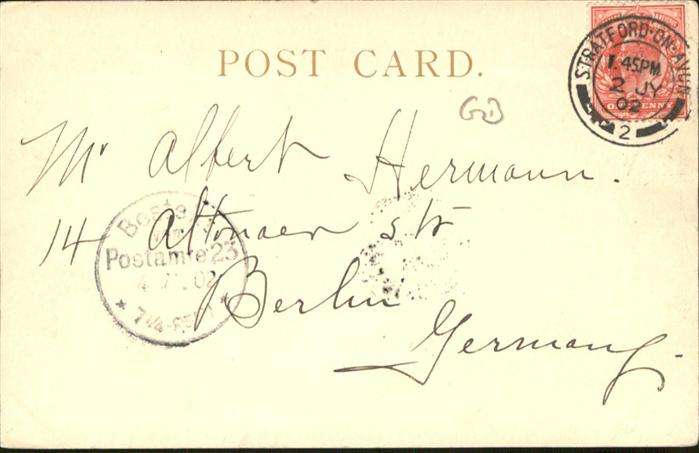 POST CARD.
STRATFORD-ON-AVON
1.45PM
2 JY
02
2
ONE PENNY
GD
Mr Albert Hermann.
14 Altonaer str
Berlin
Germany.
Postamte 23
02